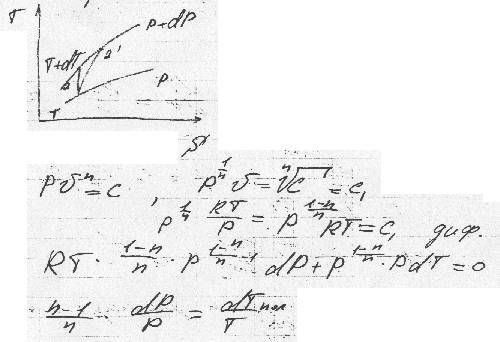 T
p+dp
T+dT
2'
2
p
T
S
pϑⁿ = c , p^(1/n) ϑ = ⁿ√c = c₁
p^(1/n) RT/p = p^((1-n)/n) RT = c₁ диф.
RT · (1-n)/n · p^((1-n)/n)' dp + p^((1-n)/n) · PdT = 0
(n-1)/n · dp/p = dT/T